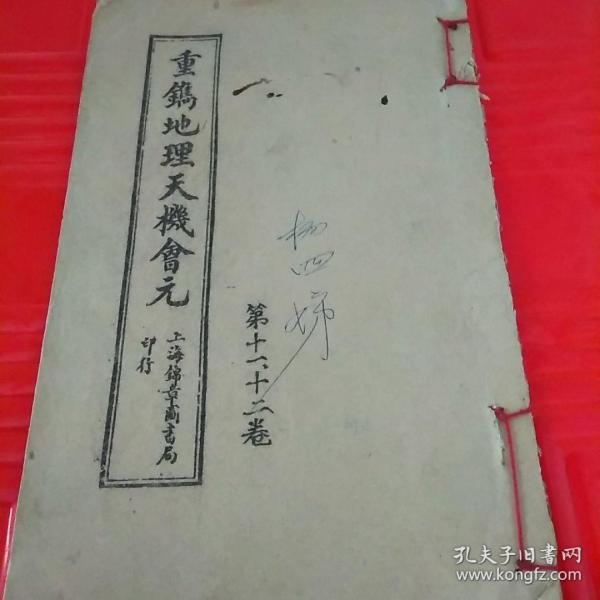 重鐫地理天機會元
上海錦章圖書局
印行
第十一、十二卷
孔夫子旧书网
www.kongfz.com